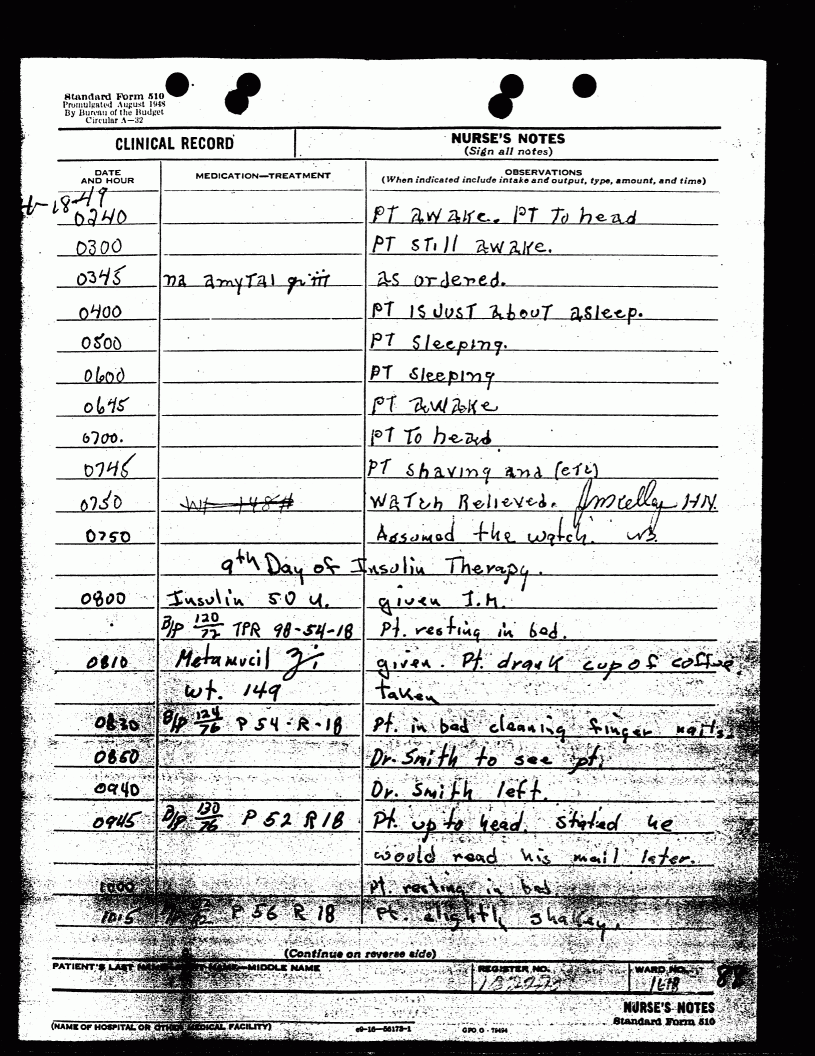 Standard Form 510
Promulgated August 1948
By Bureau of the Budget
Circular A—32
CLINICAL RECORD
NURSE'S NOTES
(Sign all notes)
DATE AND HOUR
MEDICATION—TREATMENT
OBSERVATIONS
(When indicated include intake and output, type, amount, and time)
18-49
0240 PT awake. PT To head
0300 PT still awake.
0345 na amytal gr as ordered.
0400 PT IS JUST about asleep.
0500 PT Sleeping.
0600 PT Sleeping
0645 PT awake
0700. PT To head
0745 PT shaving and (etc)
0750 Wt 148# Watch Relieved. HN.
0750 Assumed the watch.
9th Day of Insulin Therapy.
0800 Insulin 50 u. given I.M.
B/P 120/72 TPR 98-54-18 Pt. resting in bed.
0810 Metamucil given. Pt. drank cup of coffee.
wt. 149 taken
0830 B/P 124/76 P 54-R-18 Pt. in bed cleaning finger nails.
0850 Dr. Smith to see pt.
0940 Dr. Smith left.
0945 B/P 130/76 P 52 R 18 Pt. up to head. stated he
would read his mail later.
1000 Pt. resting in bed
1015 P 56 R 18 Pt. slightly shakey.
(Continue on reverse side)
PATIENT'S LAST NAME—FIRST NAME—MIDDLE NAME
REGISTER NO.
WARD NO.
88
NURSE'S NOTES
Standard Form 510
(NAME OF HOSPITAL OR OTHER MEDICAL FACILITY)